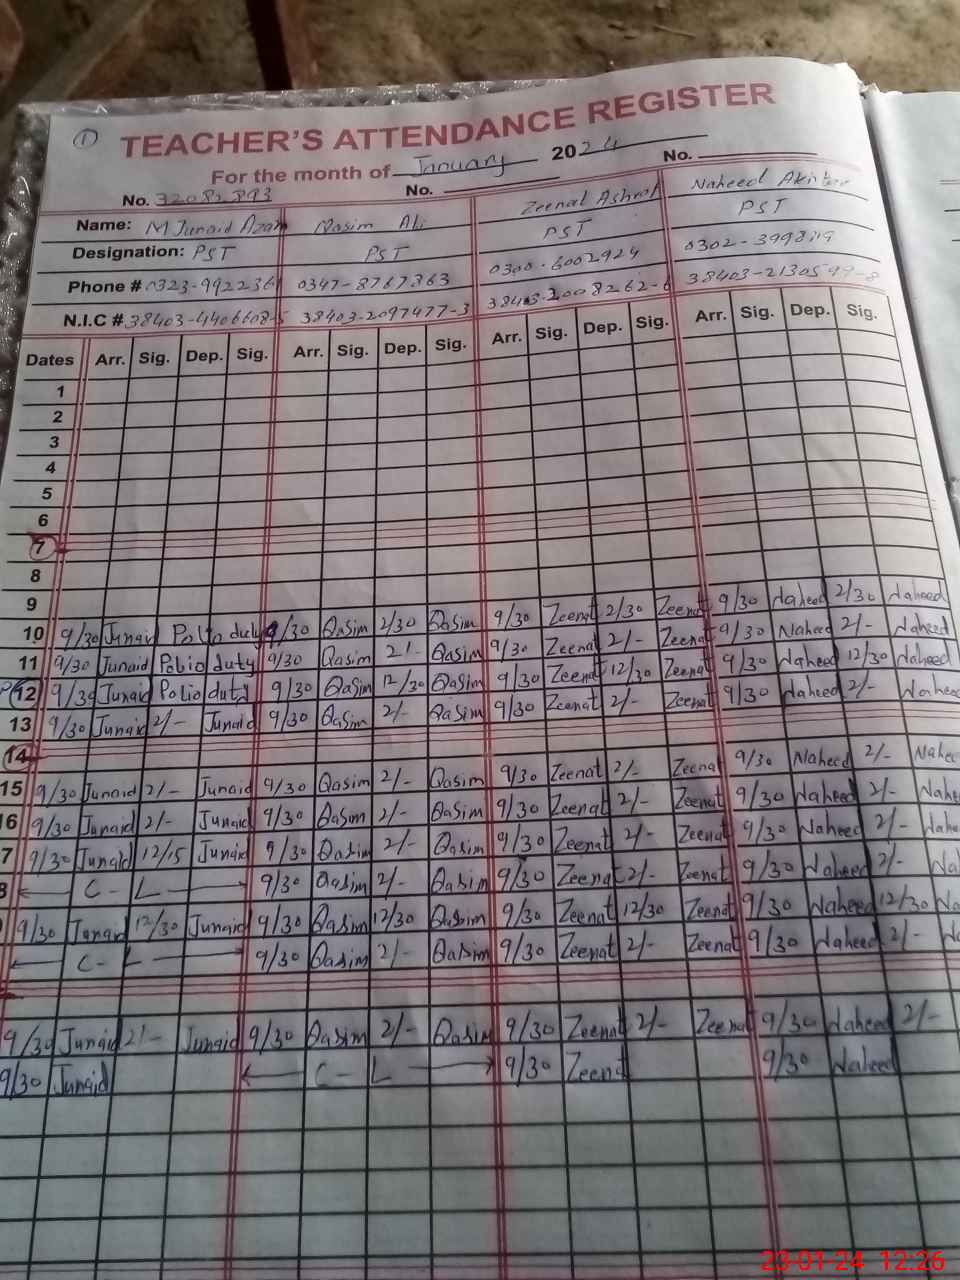 1
TEACHER'S ATTENDANCE REGISTER
For the month of January 2024
No. 32082893 No. No.
Name: M Junaid Azam Qasim Ali Zeenat Ashraf Naheed Akhter
Designation: PST PST PST PST
Phone # 0323-992236 0347-8767863 0300-6002924 0302-3998119
N.I.C # 38403-4406608-5 38403-2097477-3 38403-2008262-6 38403-2130549-8
Dates Arr. Sig. Dep. Sig. Arr. Sig. Dep. Sig. Arr. Sig. Dep. Sig. Arr. Sig. Dep. Sig.
1
2
3
4
5
6
7
8
9
10 9/30 Junaid Polio duty 9/30 Qasim 2/30 Qasim 9/30 Zeenat 2/30 Zeenat 9/30 Naheed 2/30 Naheed
11 9/30 Junaid Polio duty 9/30 Qasim 2/- Qasim 9/30 Zeenat 2/- Zeenat 9/30 Naheed 2/- Naheed
12 9/30 Junaid Polio duty 9/30 Qasim 12/30 Qasim 9/30 Zeenat 12/30 Zeenat 9/30 Naheed 12/30 Naheed
13 9/30 Junaid 2/- Junaid 9/30 Qasim 2/- Qasim 9/30 Zeenat 2/- Zeenat 9/30 Naheed 2/- Nahee
14
15 9/30 Junaid 2/- Junaid 9/30 Qasim 2/- Qasim 9/30 Zeenat 2/- Zeenat 9/30 Naheed 2/- Nahee
16 9/30 Junaid 2/- Junaid 9/30 Qasim 2/- Qasim 9/30 Zeenat 2/- Zeenat 9/30 Naheed 2/- Nahe
7 9/30 Junaid 12/15 Junaid 9/30 Qasim 2/- Qasim 9/30 Zeenat 2/- Zeenat 9/30 Naheed 2/- Nah
8 C-L 9/30 Qasim 2/- Qasim 9/30 Zeenat 2/- Zeenat 9/30 Naheed 2/- Na
9/30 Junaid 12/30 Junaid 9/30 Qasim 12/30 Qasim 9/30 Zeenat 12/30 Zeenat 9/30 Naheed 12/30 Na
C-L 9/30 Qasim 2/- Qasim 9/30 Zeenat 2/- Zeenat 9/30 Naheed 2/- Na
9/30 Junaid 2/- Junaid 9/30 Qasim 2/- Qasim 9/30 Zeenat 2/- Zeenat 9/30 Naheed 2/-
9/30 Junaid C-L 9/30 Zeenat 9/30 Naheed
23-01-24 12:26